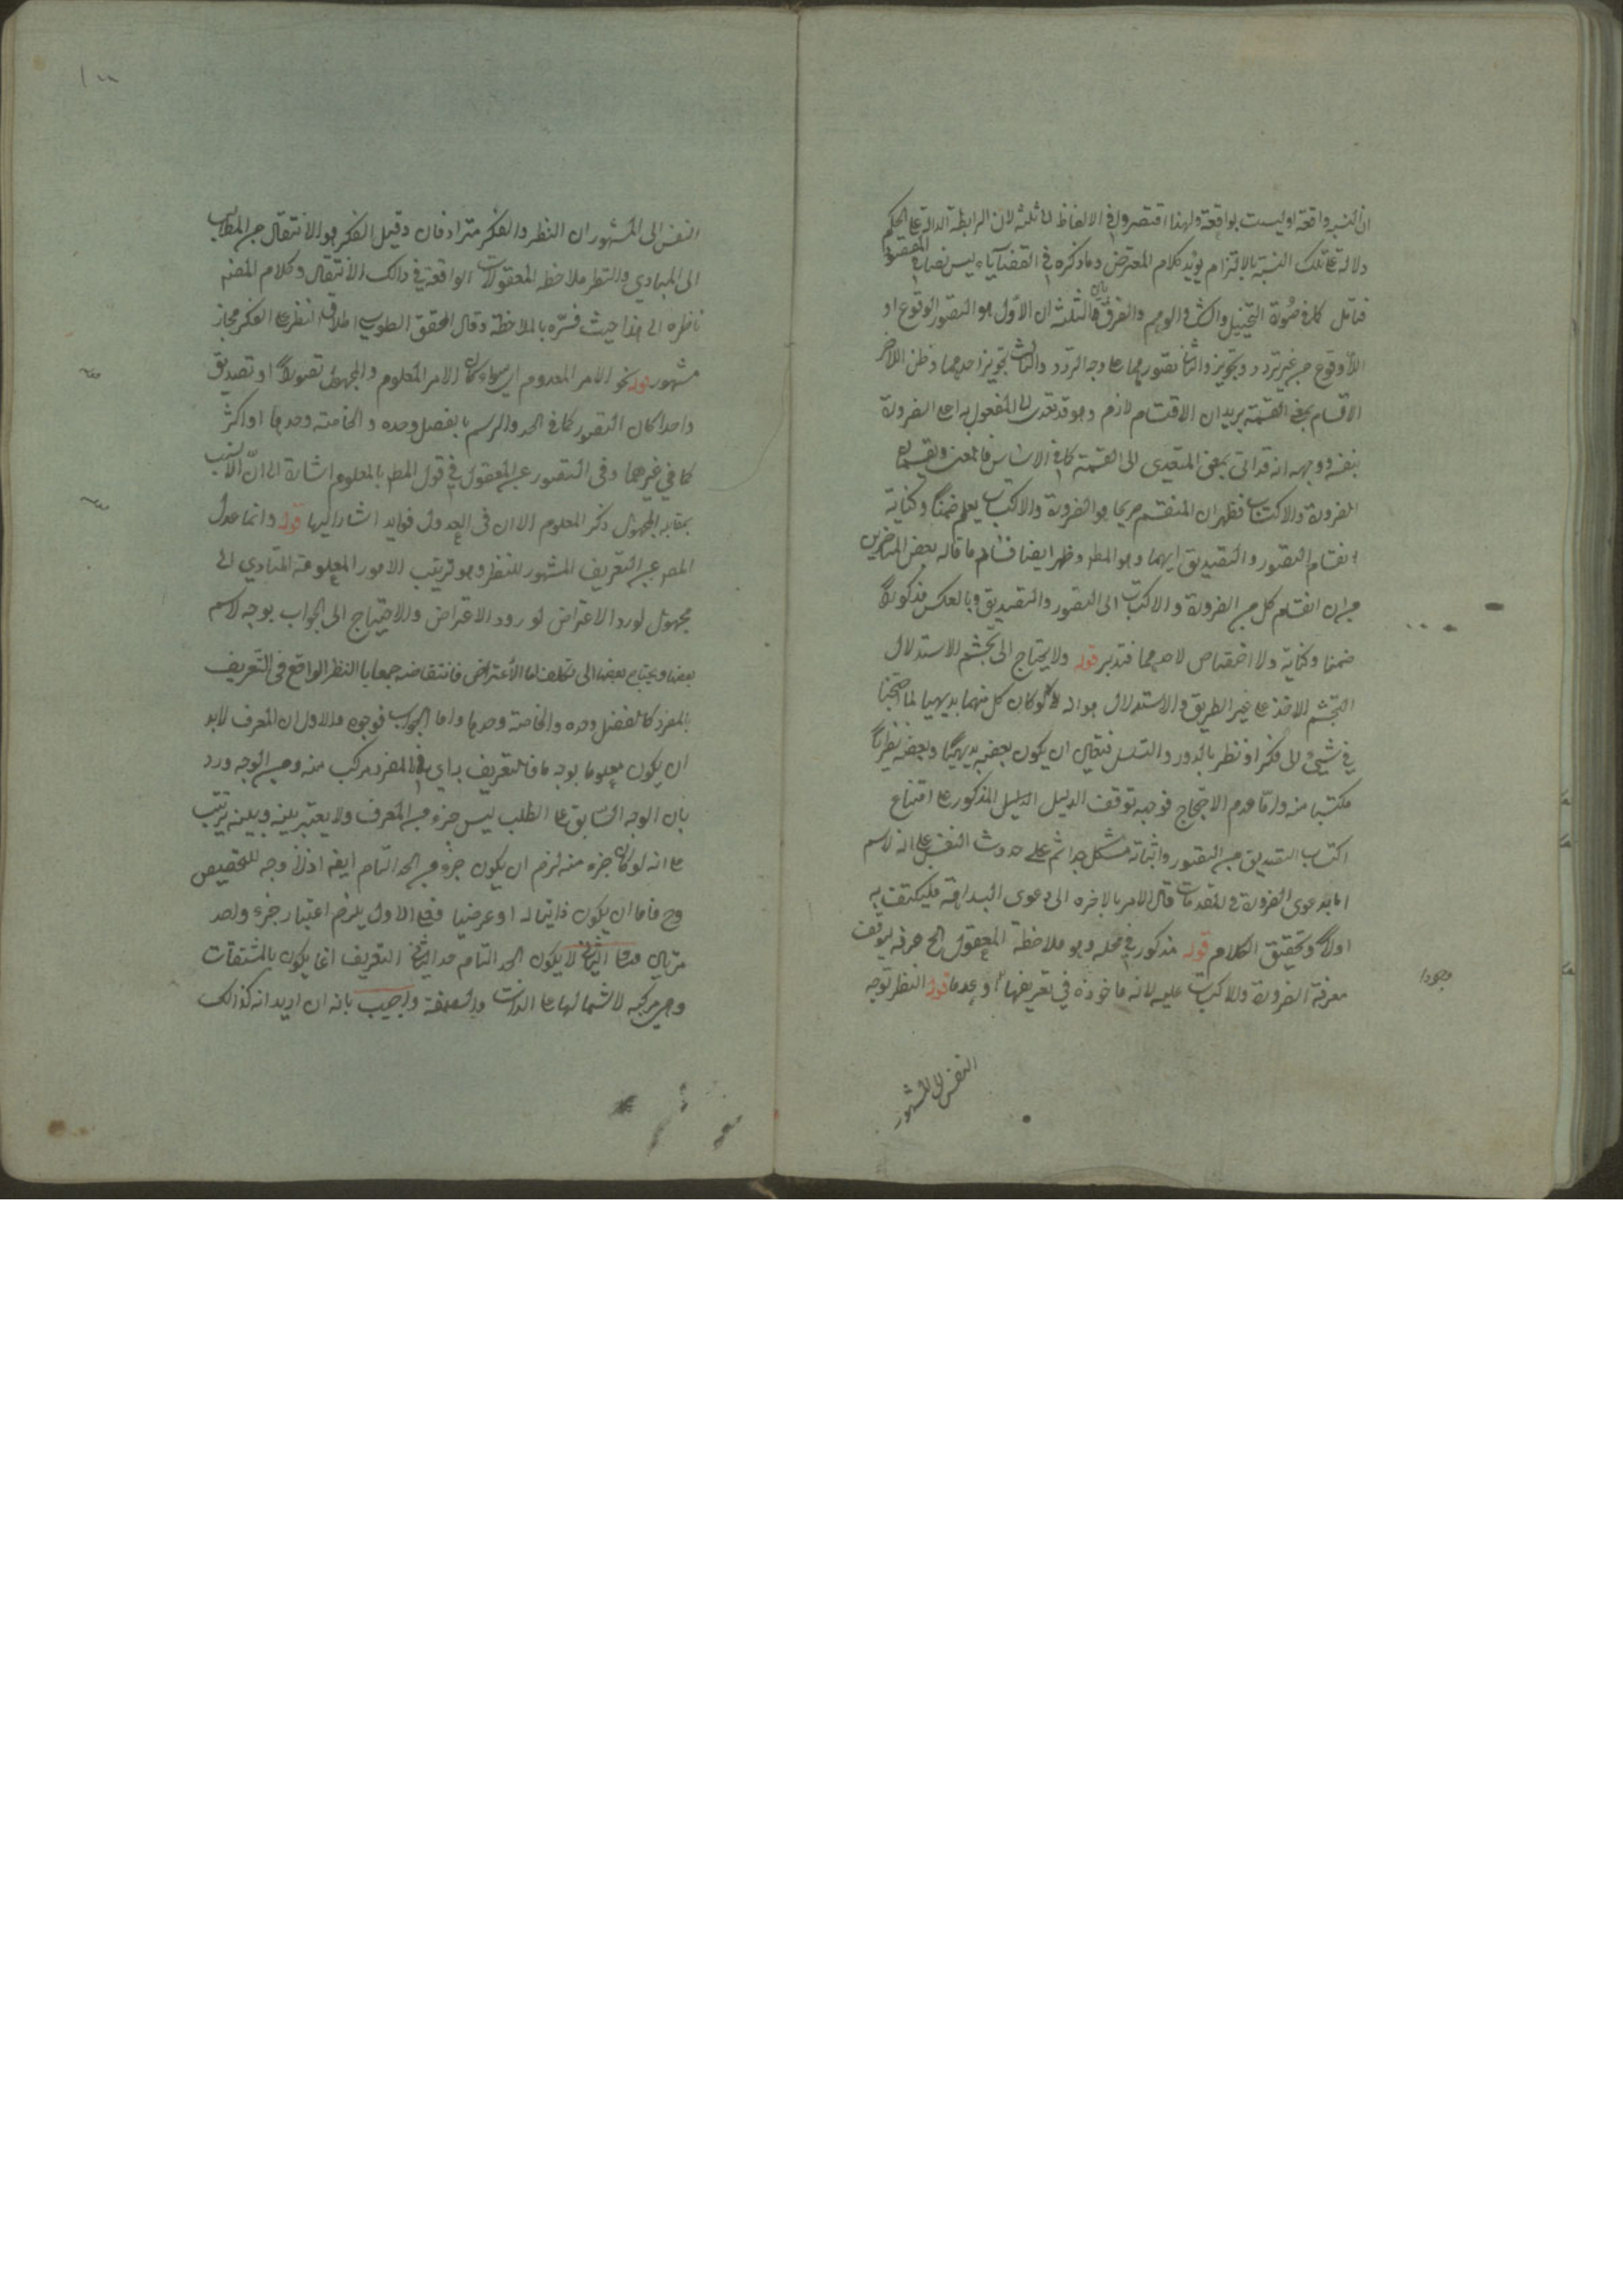 ان النسبة واقعة او ليست بواقعة ولهذا اقتصروا في الالفاظ الثلثة لان الرابطة الدالة على الحكم
دلالة على تلك النسبة بالالتزام يؤيد كلام المعترض وما ذكره في القضايا ليس نصا في المقصود
فتأمل كما في صورة التخييل والشك والوهم والفرق بين الثلثة ان الاول هو التصور الوقوع او
اللاوقوع من غير تردد وتجويز والثاني تصورهما على وجه التردد والثالث تجويز احدهما وظن الاخر
الاقسام بمعنى القسمة يريد ان الاقتسام لازم وهو قد تعدى الى المفعول به اعني الضرورة
بنفسه ووجهه انه قد اتى بمعنى المتعدي الى القسمة كما في الاساس فالمعنى
الضرورة والاكتساب فظهر ان المنقسم صريحا هو الضرورة والاكتساب يعلم ضمنا وكناية
انقسام التصور والتصديق ايهما وهو المط وظهر ايضا فساد ما قاله بعض المتأخرين
من ان انقسام كل من الضرورة والاكتساب الى التصور والتصديق وبالعكس مذكور
ضمنا وكناية ولا اختصاص لاحدهما فتدبر قوله ولا يحتاج الى تجشم الاستدلال
التجشم الاخذ على غير الطريق والاستدلال هو انه لو كان كل منهما بديهيا لما احتجنا
في شيئ الى فكر او نظر بالدور والتسلسل فتعين ان يكون بعضه بديهيا وبعضه نظريا
مكتسبا منه واما عدم الاحتياج فوجهه توقف الدليل الدليل المذكور على امتناع
اكتساب التصديق من التصور واثباته مشكل جدا ثم على حدوث النفس على انه لاسم
اما بدعوى الضرورة في المقدمات قال الامر بالاخرة الى دعوى البداهة فليكتف به
اولا وتحقيق الكلام قوله مذكور في محله وهو ملاحظة المعقول الخ عرفه ليوقف
معرفة الضرورة والاكتساب عليه لانه ماخوذة في تعريفها او عدما قوله النظر توجه
وجودا
النفس الى المشهور
النفس الى المشهور ان النظر والفكر مترادفان وقيل الفكر هو الانتقال من المطالب
الى المبادي والنظر ملاحظة المعقولات الواقعة في ذالك الانتقال وكلام المصنف
ناظره الى هذا حيث فسره بالملاحظة وقال المحقق الطوسي اطلاق النظر على الفكر مجاز
مشهور قوله نحو الامر المعدوم اي سواء كان الامر المعلوم والمجهول تصورا او تصديق
واحدا كان التصور كما في الحد والرسم بالفصل وحده والخاصة وحدها او اكثر
كما في غيرهما وفي التصور عن المعقول في قول المط بالمعلوم اشارة الى ان الانسب
بمقابلة المجهول ذكر المعلوم الا ان في العدول فوايد اشار اليها قوله وانما عدل
المصر عن التعريف المشهور للنظر وهو ترتيب الامور المعلومة المتأدي الى
مجهول لورد الاعتراض لورود الاعتراض والاحتياج الى الجواب بوجه لاسم
بعضا ويحتاج بعضها الى تكلف اما الاعتراض فانتقاضه جمعا بالنظر الواقع في التعريف
بالمفرد كالفصل وحده والخاصة وحدها واما الجواب فوجوه الاول ان المعرف لابد
ان يكون معلوما بوجه ما فالتعريف بـاي في المفرد مركب منه ومن الوجه ورد
بان الوجه السابق على الطلب ليس جزء من المعرف ولا يعتبر بينه وبينه ترتيب
على انه لو كان جزء منه لزم ان يكون جزء من الحد التام ايضه اذ لا وجه للتخصيص
وح فاما ان يكون ذاتيا له او عرضيا فعلى الاول يلزم اعتبار جزء واحد
مرتين وعلى الثاني لا يكون الحد التام حدا الثاني التعريف انما يكون بالمشتقات
وهي مركبة لاشتمالها على الذات والصفة واجيب بانه ان اريد انه كذالك